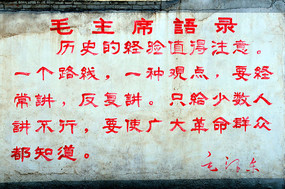 毛主席語录
历史的经验值得注意。
一个路线，一种观点，要经
常讲，反复讲。只给少数人
讲不行，要使广大革命群众
都知道。
毛泽东